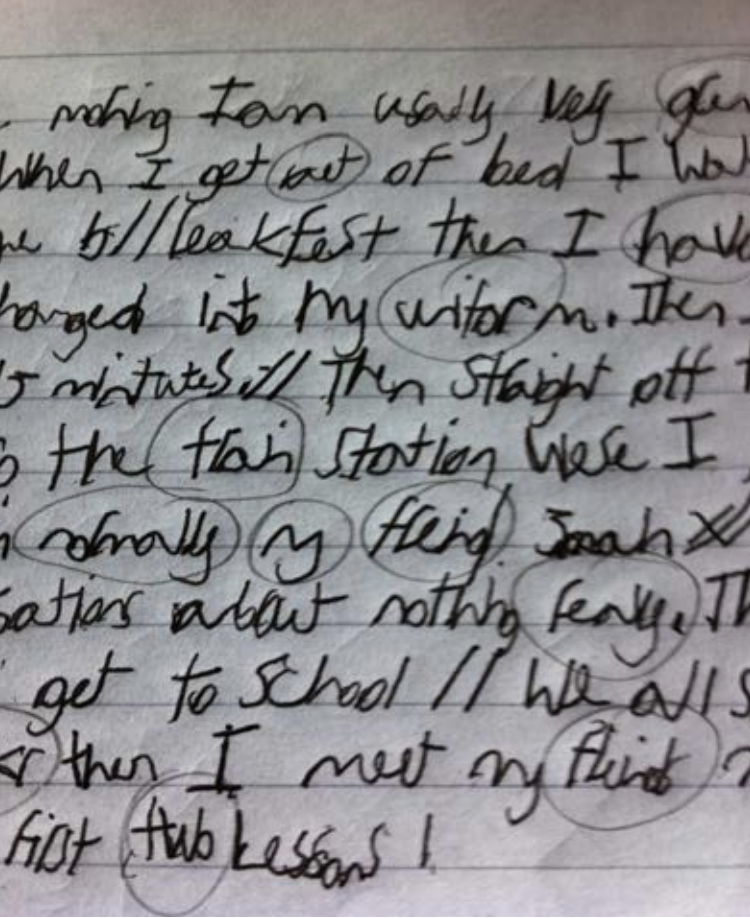 moning I am usaully very
When I get out of bed I
b//leakfest then I have
hanged into my uniform. Then
5 mintutes. // Then straight off
the train station wese I
nolmally my fleind Jonah
sations about nothing really. Th
get to School // We all s
then I meet my fleind
first two Lessons !